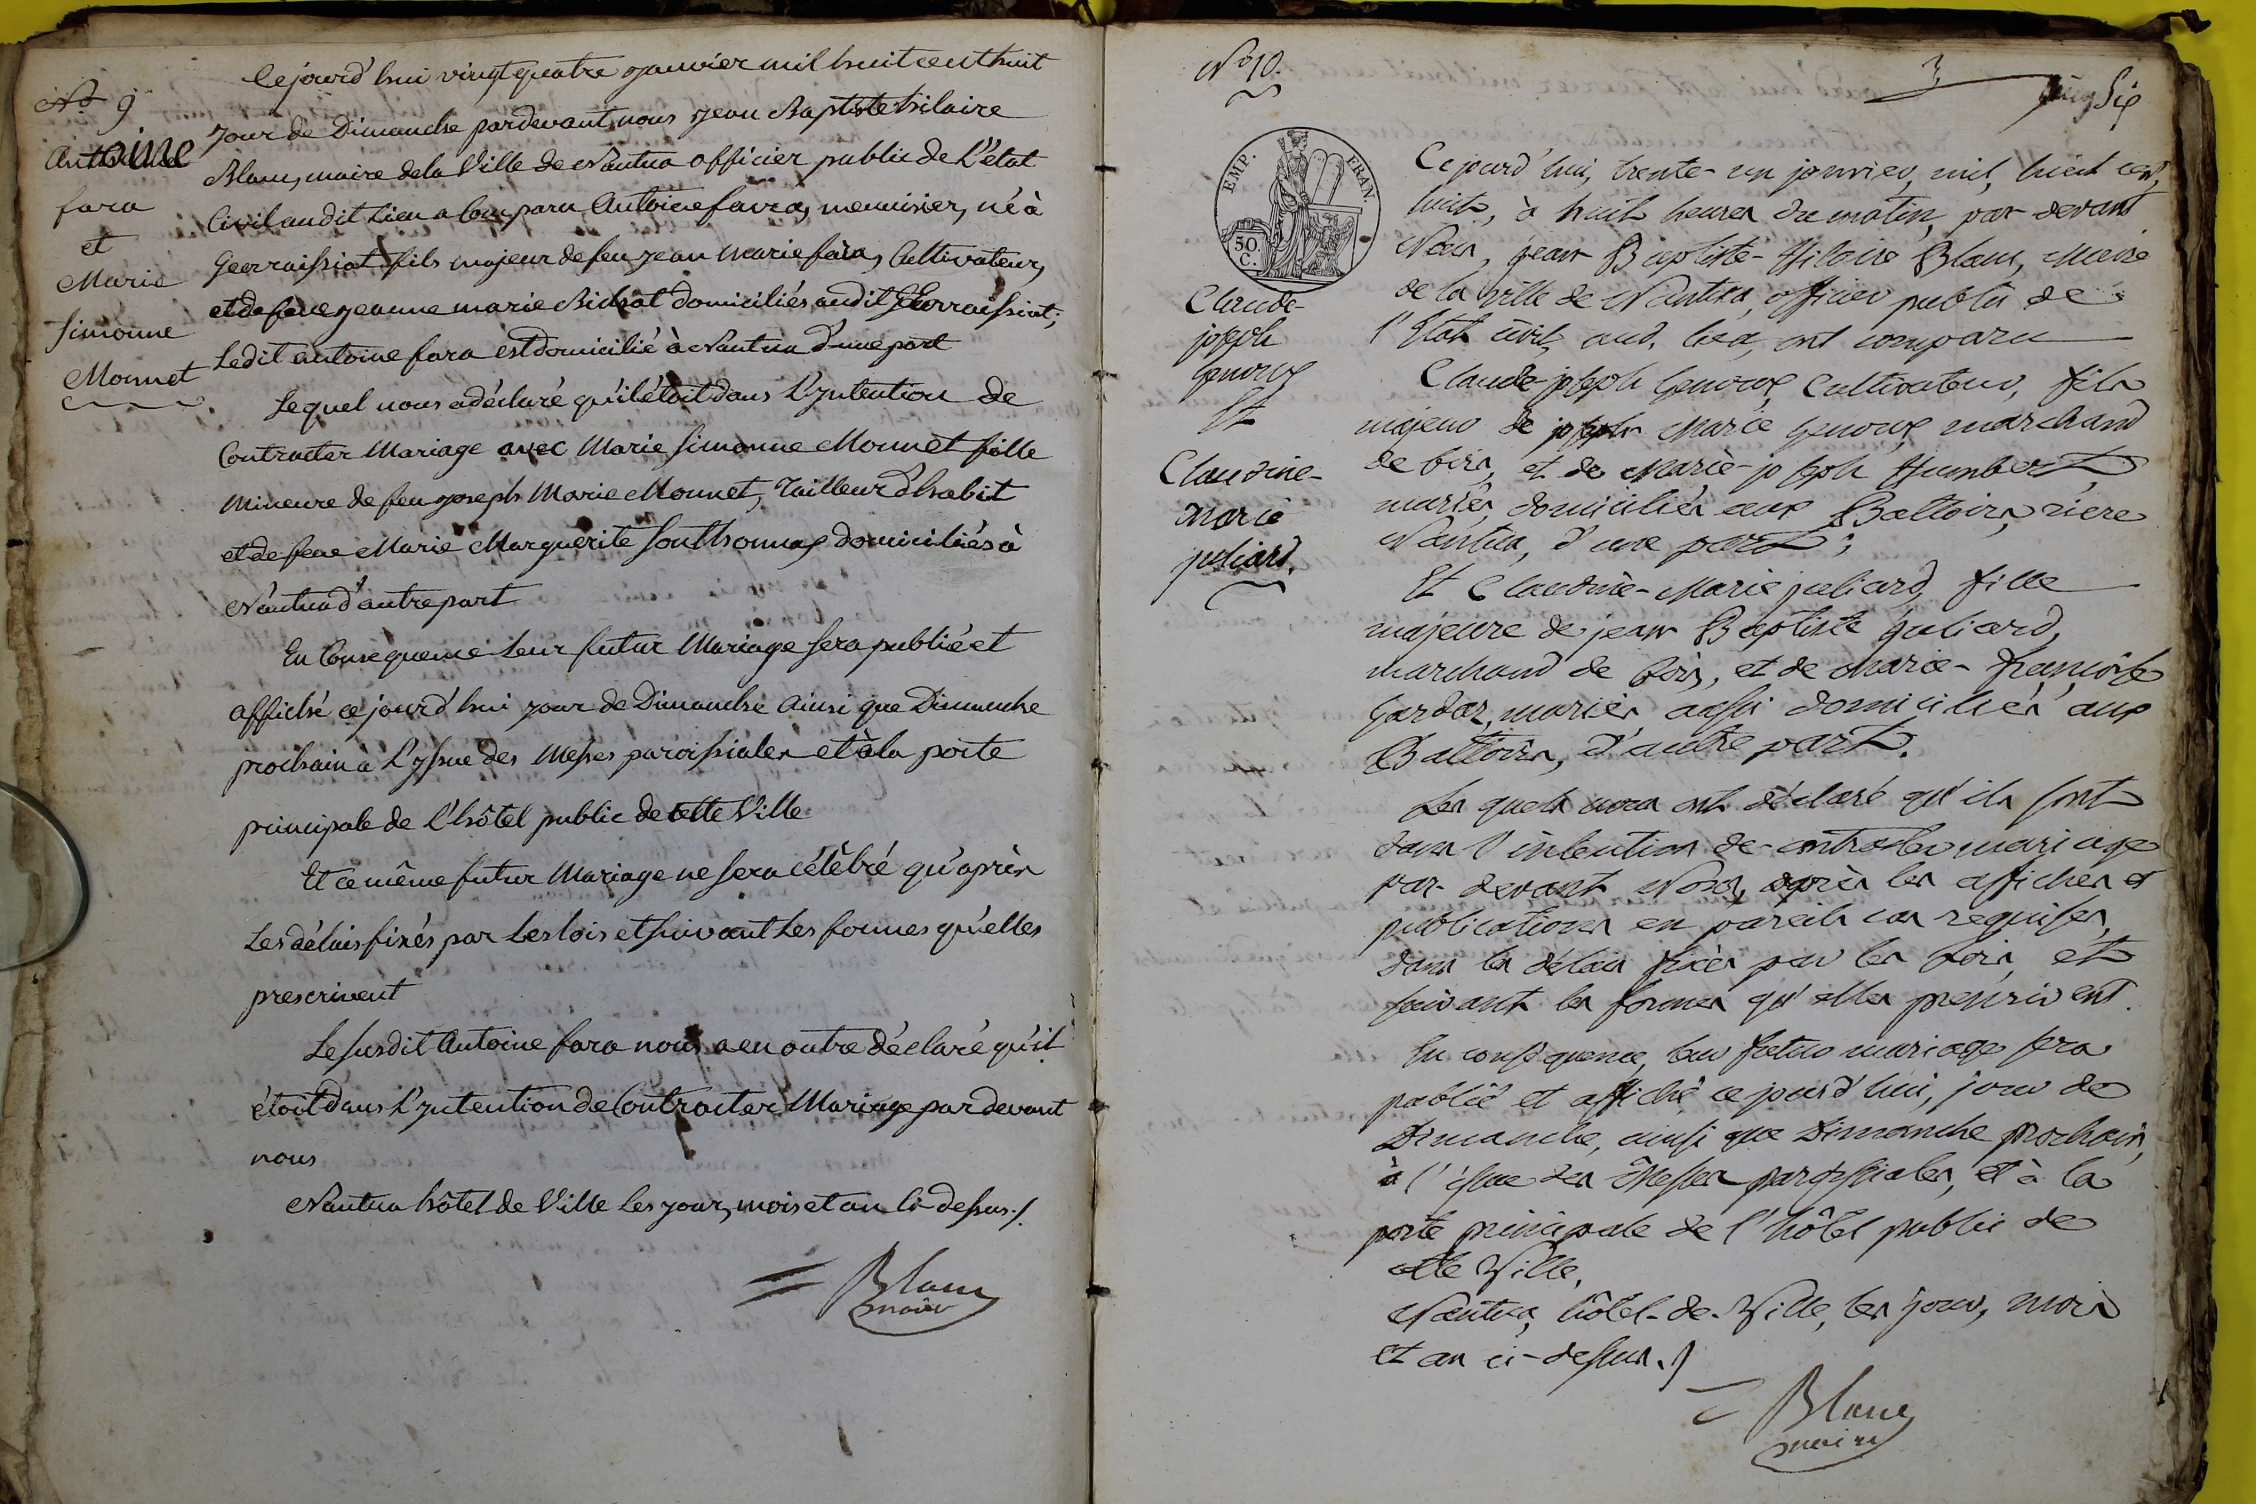 No 9
Antoine
fara
et
Marie
Simonne
Monnet
Cejourd'hui vingt quatre janvier mil huit cent huit
jour de Dimanche pardevant nous jean Baptiste hilaire
Blanc, maire de la Ville de Nantua officier public de L'état
Civil audit Lieu a Comparu Antoine favra, menuisier, né à
Gerraissiat fils majeur de feu jean marie fara, Cultivateur,
et de feue jeanne marie Bichat domiciliés audit Gerraissiat;
Ledit antoine fara est domicilié à Nantua d'une part
Lequel nous a déclaré qu'il étoit dans L'intention de
Contracter Mariage avec Marie Simonne Monnet fille
Mineure de feu joseph Marie Monnet, Tailleur d'habit
et de feue Marie Marguerite Southonnax domiciliés à
Nantua d'autre part
En Consequence Leur futur Mariage Sera publié et
affiché ce jourd'hui jour de Dimanche Ainsi que Dimanche
prochain à L'yssue des Messes paroissiales et à la porte
principale de L'hôtel public de cette Ville
Et ce même futur Mariage ne Sera célébré qu'après
Les délais fixés par Les lois et Suivant Les formes qu'elles
prescrivent
Le Susdit Antoine fara nous a en outre déclaré qu'il
étoit dans L'intention de Contracter Mariage par devant
nous
Nantua hôtel de Ville Les jour, mois et an Ci-dessus./.
Blanc
maire
No 10.
3
Six
EMP. FRAN.
50. C.
Claude-
joseph
Genoux
Et
Claudine-
Marie
juliard.
Cejourd'hui, trente-un janvier, mil, huit cent,
huit, à huit heures du matin, par devant
Nous, jean Baptiste-Hilaire Blanc, Maire
de la ville de Nantua, officier public de
l'Etat civil, aud. lieu, ont comparu
Claude-joseph Genoux, Cultivateur, fils
majeur de joseph Marie Genoux marchand
de bois, et de Marie-joseph Humbert,
mariés, domiciliés aux Battoirs, riere
Nantua, d'une part;
Et Claudine-Marie juliard, fille
majeure de jean Baptiste juliard,
marchand de bois, et de Marie-françoise
Gardaz, mariés aussi domiciliés aux
Battoirs, d'autre part.
Les quels nous ont déclaré qu'ils sont
dans l'intention de contracter mariage
par-devant Nous, après les affiches et
publications en pareils cas requises,
dans les délais fixés par les lois, et
suivant les formes qu'elles prescrivent.
En conséquence, leur futur mariage sera
publié et affiché ce jourd'hui, jour de
Dimanche, ainsi que Dimanche prochain,
à l'issue des Messes paroissiales, et à la
porte principale de l'hôtel public de
cette Ville.
Nantua, hôtel-de-Ville, les jour, mois
et an ci-dessus./
Blanc
maire